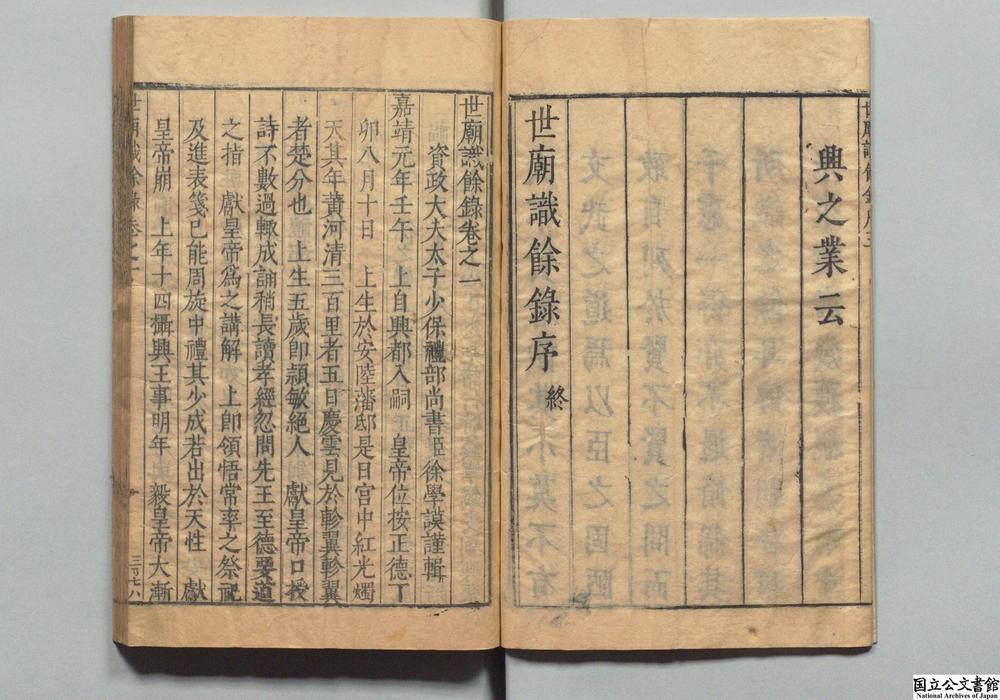 興之業云
世廟識餘錄序 終
世廟識餘錄卷之一
資政大夫太子少保禮部尚書臣徐學謨謹輯
嘉靖元年壬午 上自興都入嗣 皇帝位按正德丁
卯八月十日 上生於安陸藩邸是日宮中紅光燭
天其年黃河清三百里者五日慶雲見於軫翼軫翼
者楚分也 上生五歲即頴敏絕人 獻皇帝口授
詩不數過輒成誦稍長讀孝經忽問先王至德要道
之指 獻皇帝爲之講解 上即領悟常率之祭祀
及進表箋已能周旋中禮其少成若出於天性 獻
皇帝崩 上年十四攝興王事明年 毅皇帝大漸
世廟識餘錄 卷之一
国立公文書館
National Archives of Japan